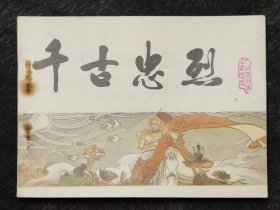 千古忠烈